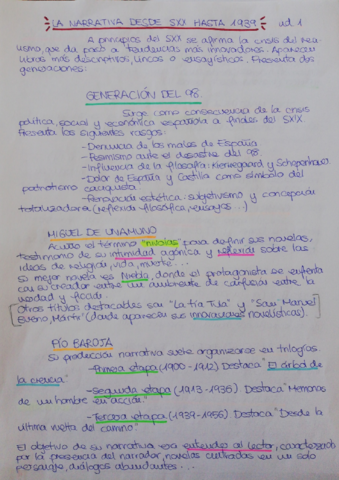 LA NARRATIVA DESDE SXX HASTA 1939 ud. 1
A principios del SXX se afirma la crisis del rea-
lismo, que da paso a tendencias más innovadoras. Aparecen
libros más descriptivos, líricos o ensayísticos. Presenta dos
generaciones:
GENERACIÓN DEL 98.
Surge como consecuencia de la crisis
política, social y económica española a finales del SXIX
Presenta los siguientes rasgos:
-Denuncia de los males de España
-Pesimismo ante el desastre del 98
-Influencia de la filosofía: Kierkegaard y Schopenhauer
-Dolor de España y Castilla como símbolo del
patriotismo
-Renovación estética: subjetivismo y concepción
totalizadora (reflexión filosófica, ensayos...)
MIGUEL DE UNAMUNO
Acuñó el término "nivolas" para definir sus novelas,
testimonio de su intimidad agónica y reflexión sobre las
ideas de religión, vida, muerte...
su mejor novela es Niebla, donde el protagonista se enfrenta
con su creador entre un ambiente de confusión entre la
verdad y ficción.
Otros títulos destacables son "La tía Tula" y "San Manuel
Bueno, Mártir" (donde aparecen sus innovaciones novelísticas).
PÍO BAROJA
Su producción narrativa suele organizarse en trilogías
-Primera etapa (1900-1912) Destaca "El árbol de
la ciencia."
-Segunda etapa (1913-1935) Destaca "Memorias
de un hombre en acción."
-Tercera etapa (1939-1956) Destaca "Desde la
última vuelta del camino."
El objetivo de su narrativa era entretener al lector, caracterizada
por la presencia del narrador, novelas centradas en un solo
personaje, diálogos abundantes...